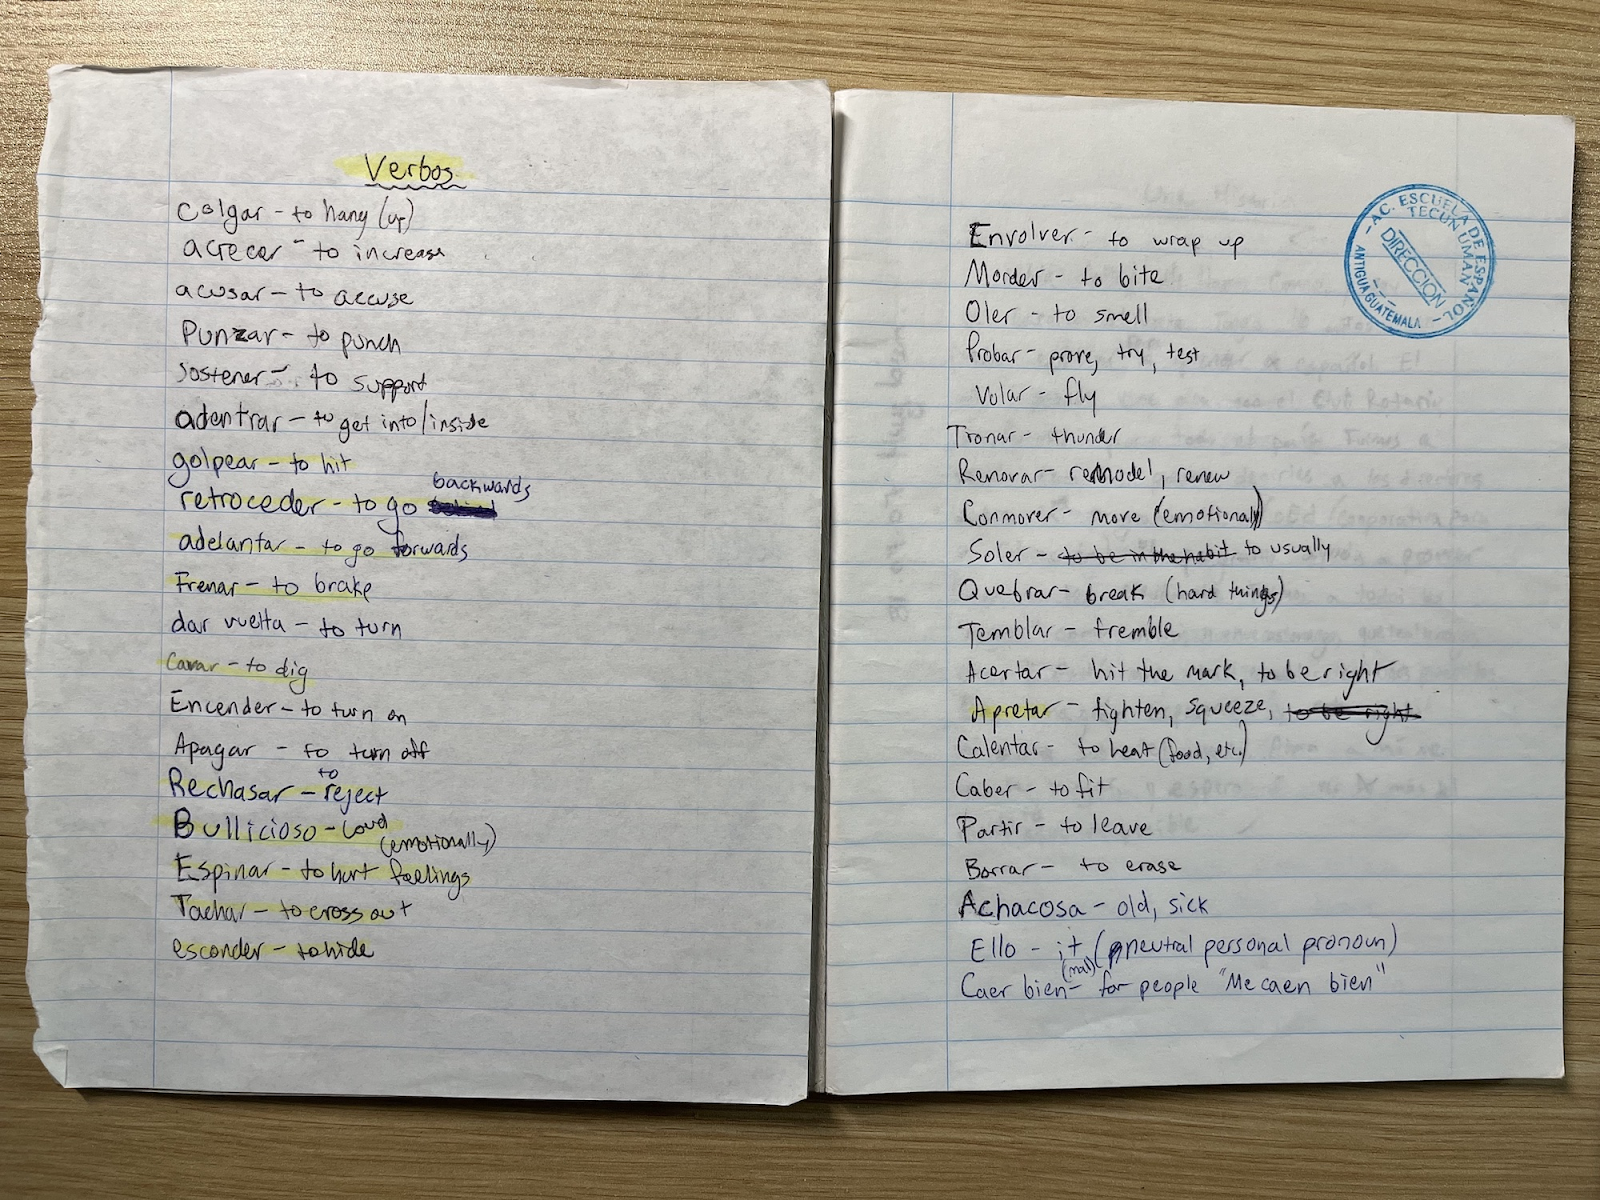 Verbos
Colgar - to hang (up)
acrecer - to increase
acusar - to accuse
Punzar - to punch
Sostener - to support
adentrar - to get into/inside
golpear - to hit
backwards
retroceder - to go
adelantar - to go forwards
Frenar - to brake
dar vuelta - to turn
Cavar - to dig
Encender - to turn on
Apagar - to turn off
Rechasar - to reject
Bullicioso - Loud
(emotionally)
Espinar - to hurt feelings
Tachar - to cross out
esconder - to hide
Envolver - to wrap up
Morder - to bite
Oler - to smell
Probar - prove, try, test
Volar - fly
Tronar - thunder
Renovar - remodel, renew
Conmover - move (emotionally)
Soler - to be in the habit to usually
Quebrar - break (hard things)
Temblar - tremble
Acertar - hit the mark, to be right
Apretar - tighten, squeeze, to be right
Calentar - to heat (food, etc.)
Caber - to fit
Partir - to leave
Borrar - to erase
Achacosa - old, sick
Ello - it (neutral personal pronoun)
(mal)
Caer bien - for people "Me caen bien"
AC. ESCUELA DE ESPAÑOL
TECUN UMAN
DIRECCION
ANTIGUA GUATEMALA